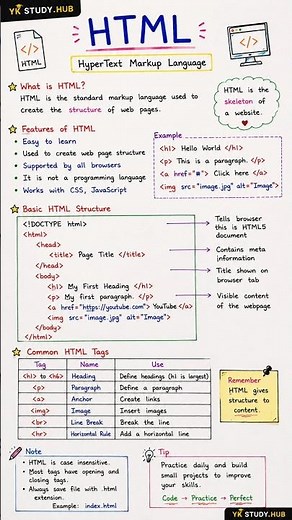 YK STUDY.HUB
HTML
</>
HTML
HyperText Markup Language
</>
What is HTML?
HTML is the standard markup language used to
create the structure of web pages.
HTML is the
skeleton of
a website.
Features of HTML
Easy to learn
Used to create web page structure
Supported by all browsers
It is not a programming language
Works with CSS, JavaScript
Example
<h1> Hello World </h1>
<p> This is a paragraph. </p>
<a href="#"> Click here </a>
<img src="image.jpg" alt="Image">
Basic HTML Structure
<!DOCTYPE html>
<html>
<head>
<title> Page Title </title>
</head>
<body>
<h1> My First Heading </h1>
<p> My first paragraph. </p>
<a href="https://youtube.com"> YouTube </a>
<img src="image.jpg" alt="Image">
</body>
</html>
Tells browser
this is HTML5
document
Contains meta
information
Title shown on
browser tab
Visible content
of the webpage
Common HTML Tags
Tag Name Use
<h1> to <h6> Heading Define headings (h1 is largest)
<p> Paragraph Define a paragraph
<a> Anchor Create links
<img> Image Insert images
<br> Line Break Break the line
<hr> Horizontal Rule Add a horizontal line
Remember
HTML gives
structure to
content.
Note
HTML is case insensitive.
Most tags have opening and
closing tags.
Always save file with .html
extension.
Example: index.html
Tip
Practice daily and build
small projects to improve
your skills.
Code → Practice → Perfect
YK STUDY.HUB